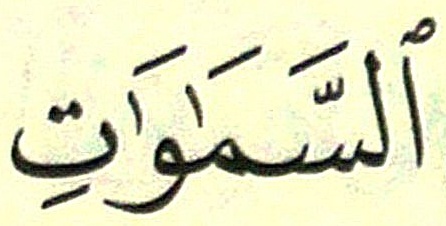 ٱلسَّمَـٰوَٰتِ